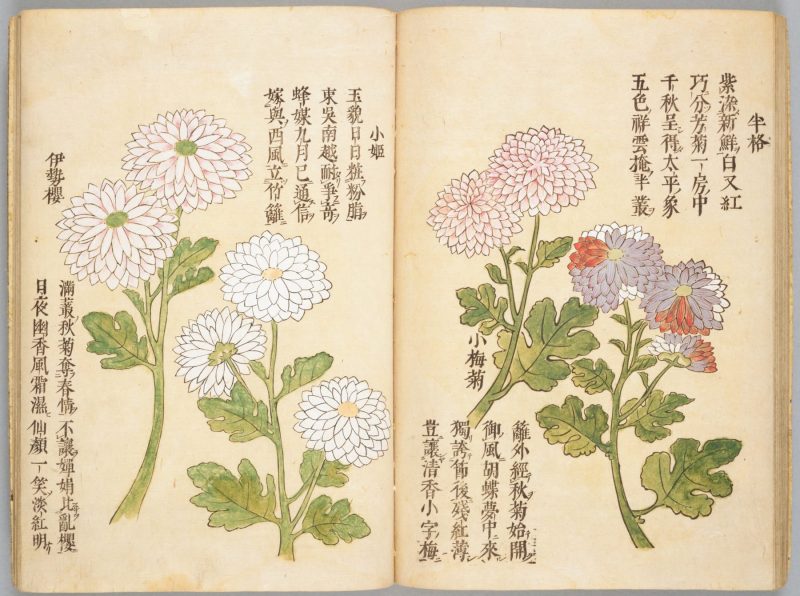 半格
紫深新鮮白又紅
巧分芳菊一房中
千秋呈得太平象
五色祥雲掩半叢
小梅菊
籬外經秋菊始開
御風胡蝶夢中來
獨誇佈後殘紅薄
豈讓清香小字梅
小姬
玉貌日日粧粉脂
東吳南越耐垂奇
蜂媒九月已通信
嫁與西風立竹籬
伊勢櫻
滿叢秋菊奪春情 不讓嬋娟比亂櫻
日夜幽香風霜濕 仙顏一笑淡紅明